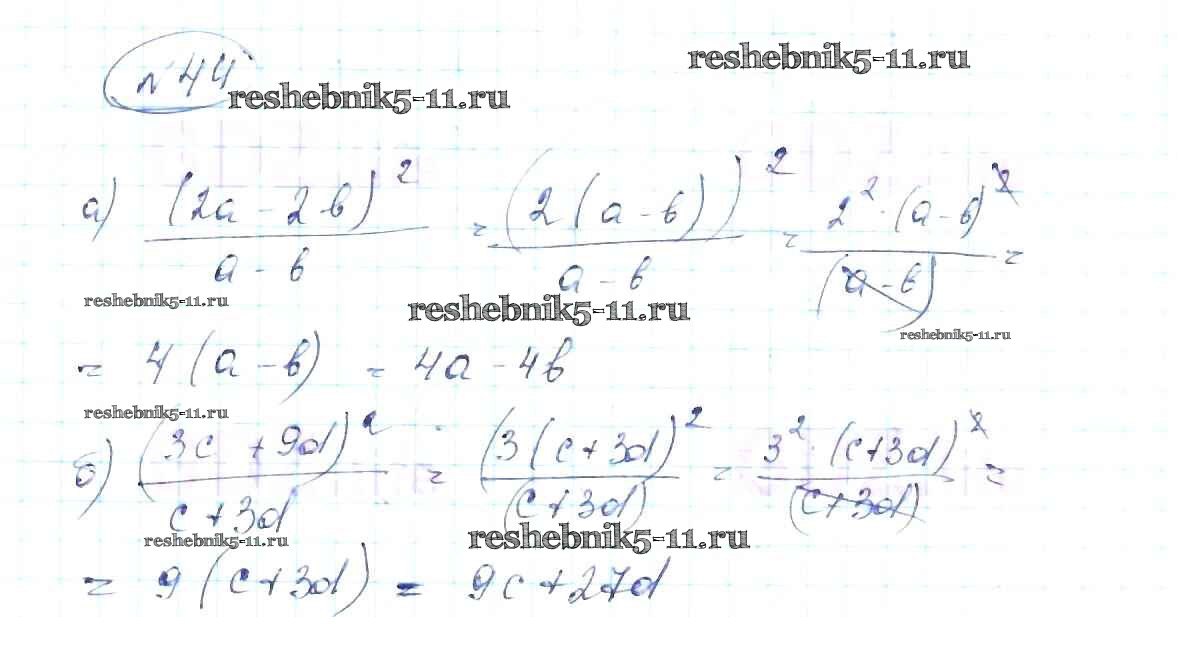 №44
reshebnik5-11.ru
reshebnik5-11.ru
а) (2a - 2b)² / a - b = (2(a - b))² / a - b = 2² · (a - b)² / (a - b) =
reshebnik5-11.ru
reshebnik5-11.ru
reshebnik5-11.ru
= 4(a - b) = 4a - 4b
reshebnik5-11.ru
б) (3c + 9d)² / c + 3d = (3(c + 3d)² / (c + 3d) = 3² · (c + 3d)² / (c + 3d) =
reshebnik5-11.ru
reshebnik5-11.ru
= 9(c + 3d) = 9c + 27d